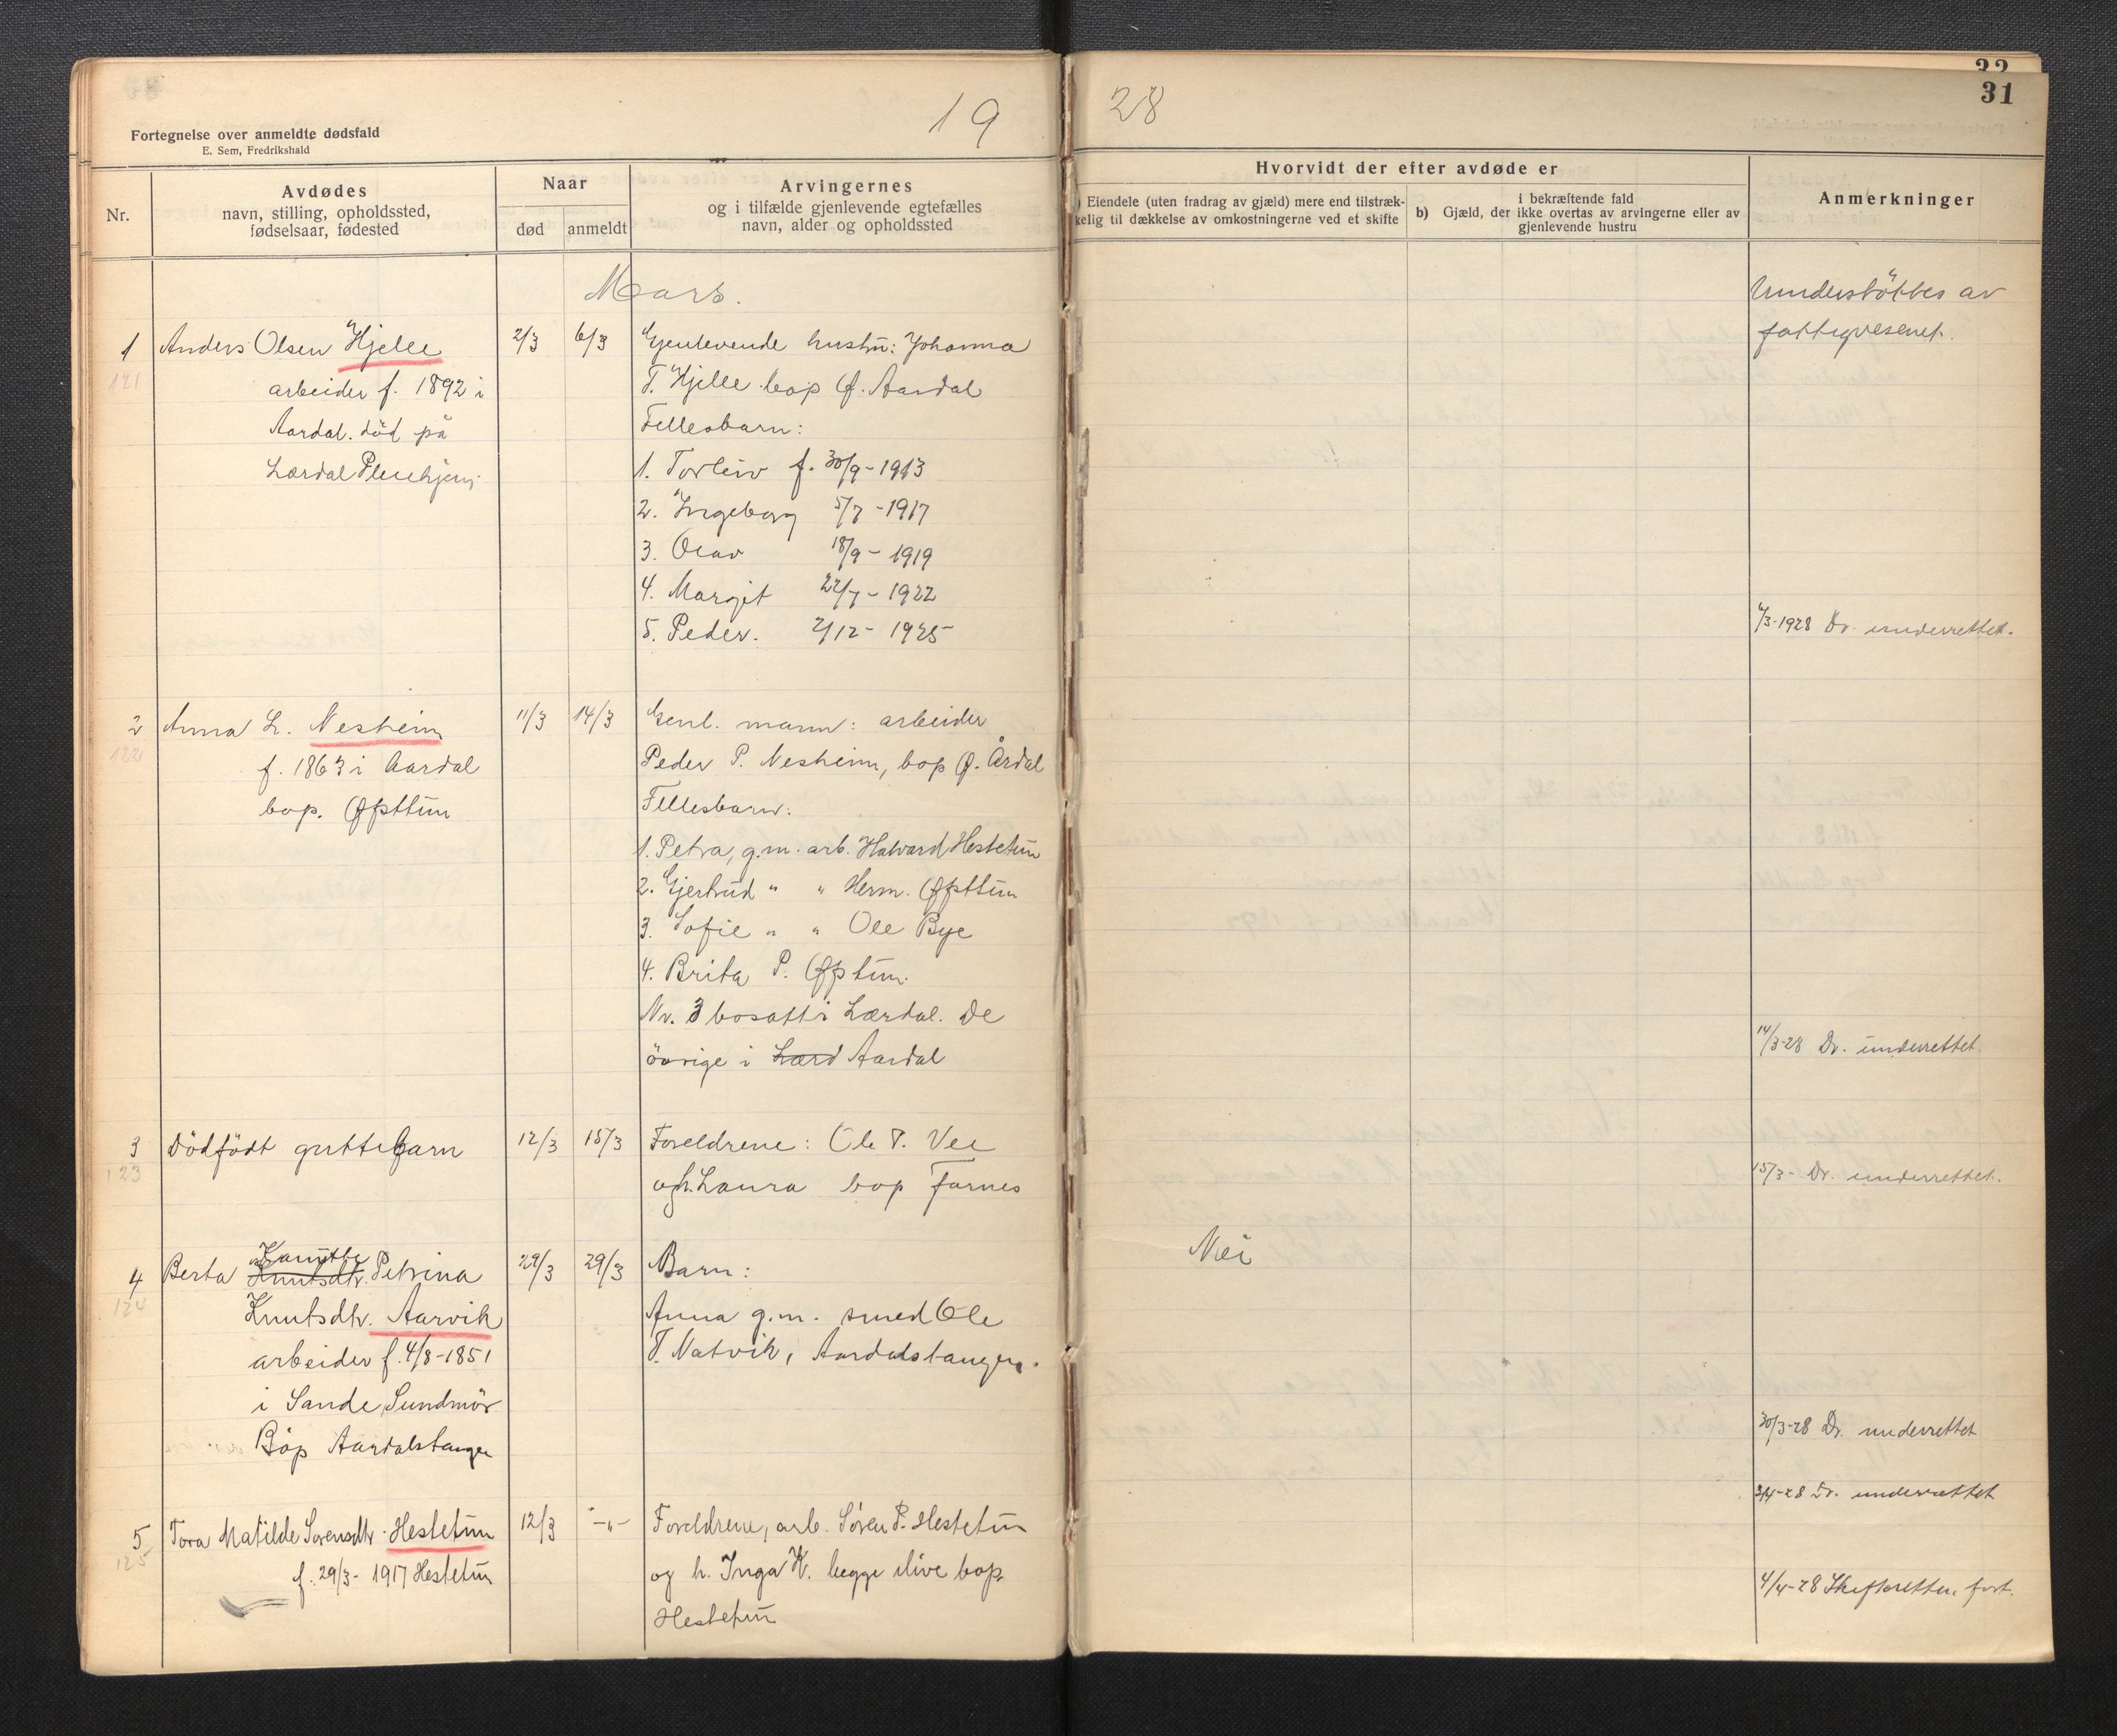 Fortegnelse over anmeldte dødsfald
E. Sem, Fredrikshald
19
28
32
31
Nr.
Avdødes
navn, stilling, opholdssted,
fødselsaar, fødested
Naar
død
anmeldt
Arvingernes
og i tilfælde gjenlevende egtefælles
navn, alder og opholdssted
Hvorvidt der efter avdøde er
Eiendele (uten fradrag av gjæld) mere end tilstræk-
kelig til dækkelse av omkostningerne ved et skifte
i bekræftende fald
b) Gjæld, der ikke overtas av arvingerne eller av
gjenlevende hustru
Anmerkninger
Mars.
1
121
Anders Olsen Hjelle
arbeider f. 1892 i
Aardal. död på
Lærdal Pleiehjem.
2/3
6/3
Gjenlevende hustru: Johanna
T. Hjelle bop Ø. Aardal
Fellesbarn:
1. Torleiv f. 30/9-1913
2. Ingeborg 5/7-1917
3. Olav 18/9-1919
4. Margit 22/7-1922
5. Peder. 2/12-1925
Understöttes av
fattigvesenet.
6/3-1928 Dr. underrettet.
2
122
Anna L. Nesheim
f. 1863 i Aardal
bop. Øpttun
11/3
14/3
Genl. mann: arbeider
Peder P. Nesheim, bop Ø. Årdal
Fellesbarn:
1. Petra, g.m. arb. Halvard Hestetun
2. Gjertrud " " Herm. Øpttun
3. Sofie " " Ole Bye
4. Brita P. Øptun.
Nr. 3 bosatt i Lærdal. De
övrige i Lærd Aardal
14/3-28 Dr. underrettet.
3
123
Dödfödt guttebarn
12/3
15/3
Foreldrene: Ole T. Vee
og h. Laura bop Farnes
15/3- Dr. underrettet.
4
124
Berta Knutsdtr. Petrina
Knutsdtr. Aarvik
arbeider f. 4/8-1851
i Sande, Sundmör
Bop Aardalstangen
29/3
Barn:
Anna g.m. smed Ole
T. Natvik, Aardalstangen.
Nei
30/3-28 Dr. underrettet
5
125
Tora Matilde Sorensdtr. Hestetun
f. 29/3-1917 Hestetun
12/3
-"-
Foreldrene, arb. Sören P. Hestetun
og h. Inga K. begge ilive bop.
Hestetun
3/4-28 Dr. underrettet
4/4-28 Skifteretten fort.